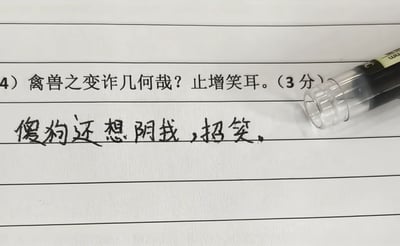 4）禽兽之变诈几何哉？止增笑耳。（3 分）
傻狗还想阴我，招笑。